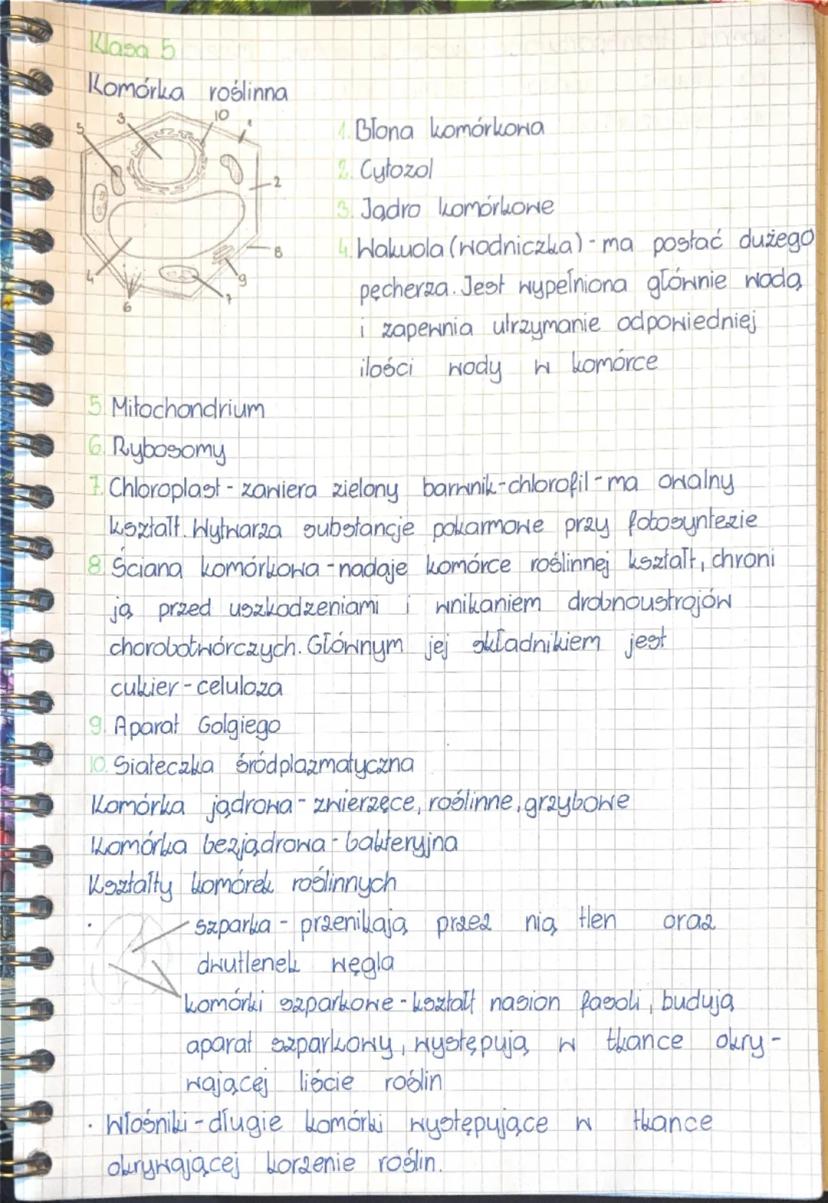 Klasa 5
Komórka roślinna
3
10
5
1
2
8
4
9
7
6
1. Błona komórkowa
2. Cytozol
3. Jądro komórkowe
4. Wakuola (wodniczka) - ma postać dużego
pęcherza. Jest wypełniona głównie wodą
i zapewnia utrzymanie odpowiedniej
ilości wody w komórce
5. Mitochondrium
6. Rybosomy
7. Chloroplast - zawiera zielony barwnik - chlorofil - ma owalny
kształt. Wytwarza substancje pokarmowe przy fotosyntezie
8. Ściana komórkowa - nadaje komórce roślinnej kształt, chroni
ją przed uszkodzeniami i wnikaniem drobnoustrojów
chorobotwórczych. Głównym jej składnikiem jest
cukier - celuloza
9. Aparat Golgiego
10. Siateczka śródplazmatyczna
Komórka jądrowa - zwierzęce, roślinne, grzybowe
Komórka bezjądrowa - bakteryjna
Kształty komórek roślinnych
· szparka - przenikają przez nią tlen oraz
dwutlenek węgla
komórki szparkowe - kształt nasion fasoli, budują
aparat szparkowy, występują w tkance okry-
wającej liście roślin
· Włośniki - długie komórki występujące w tkance
okrywającej korzenie roślin.